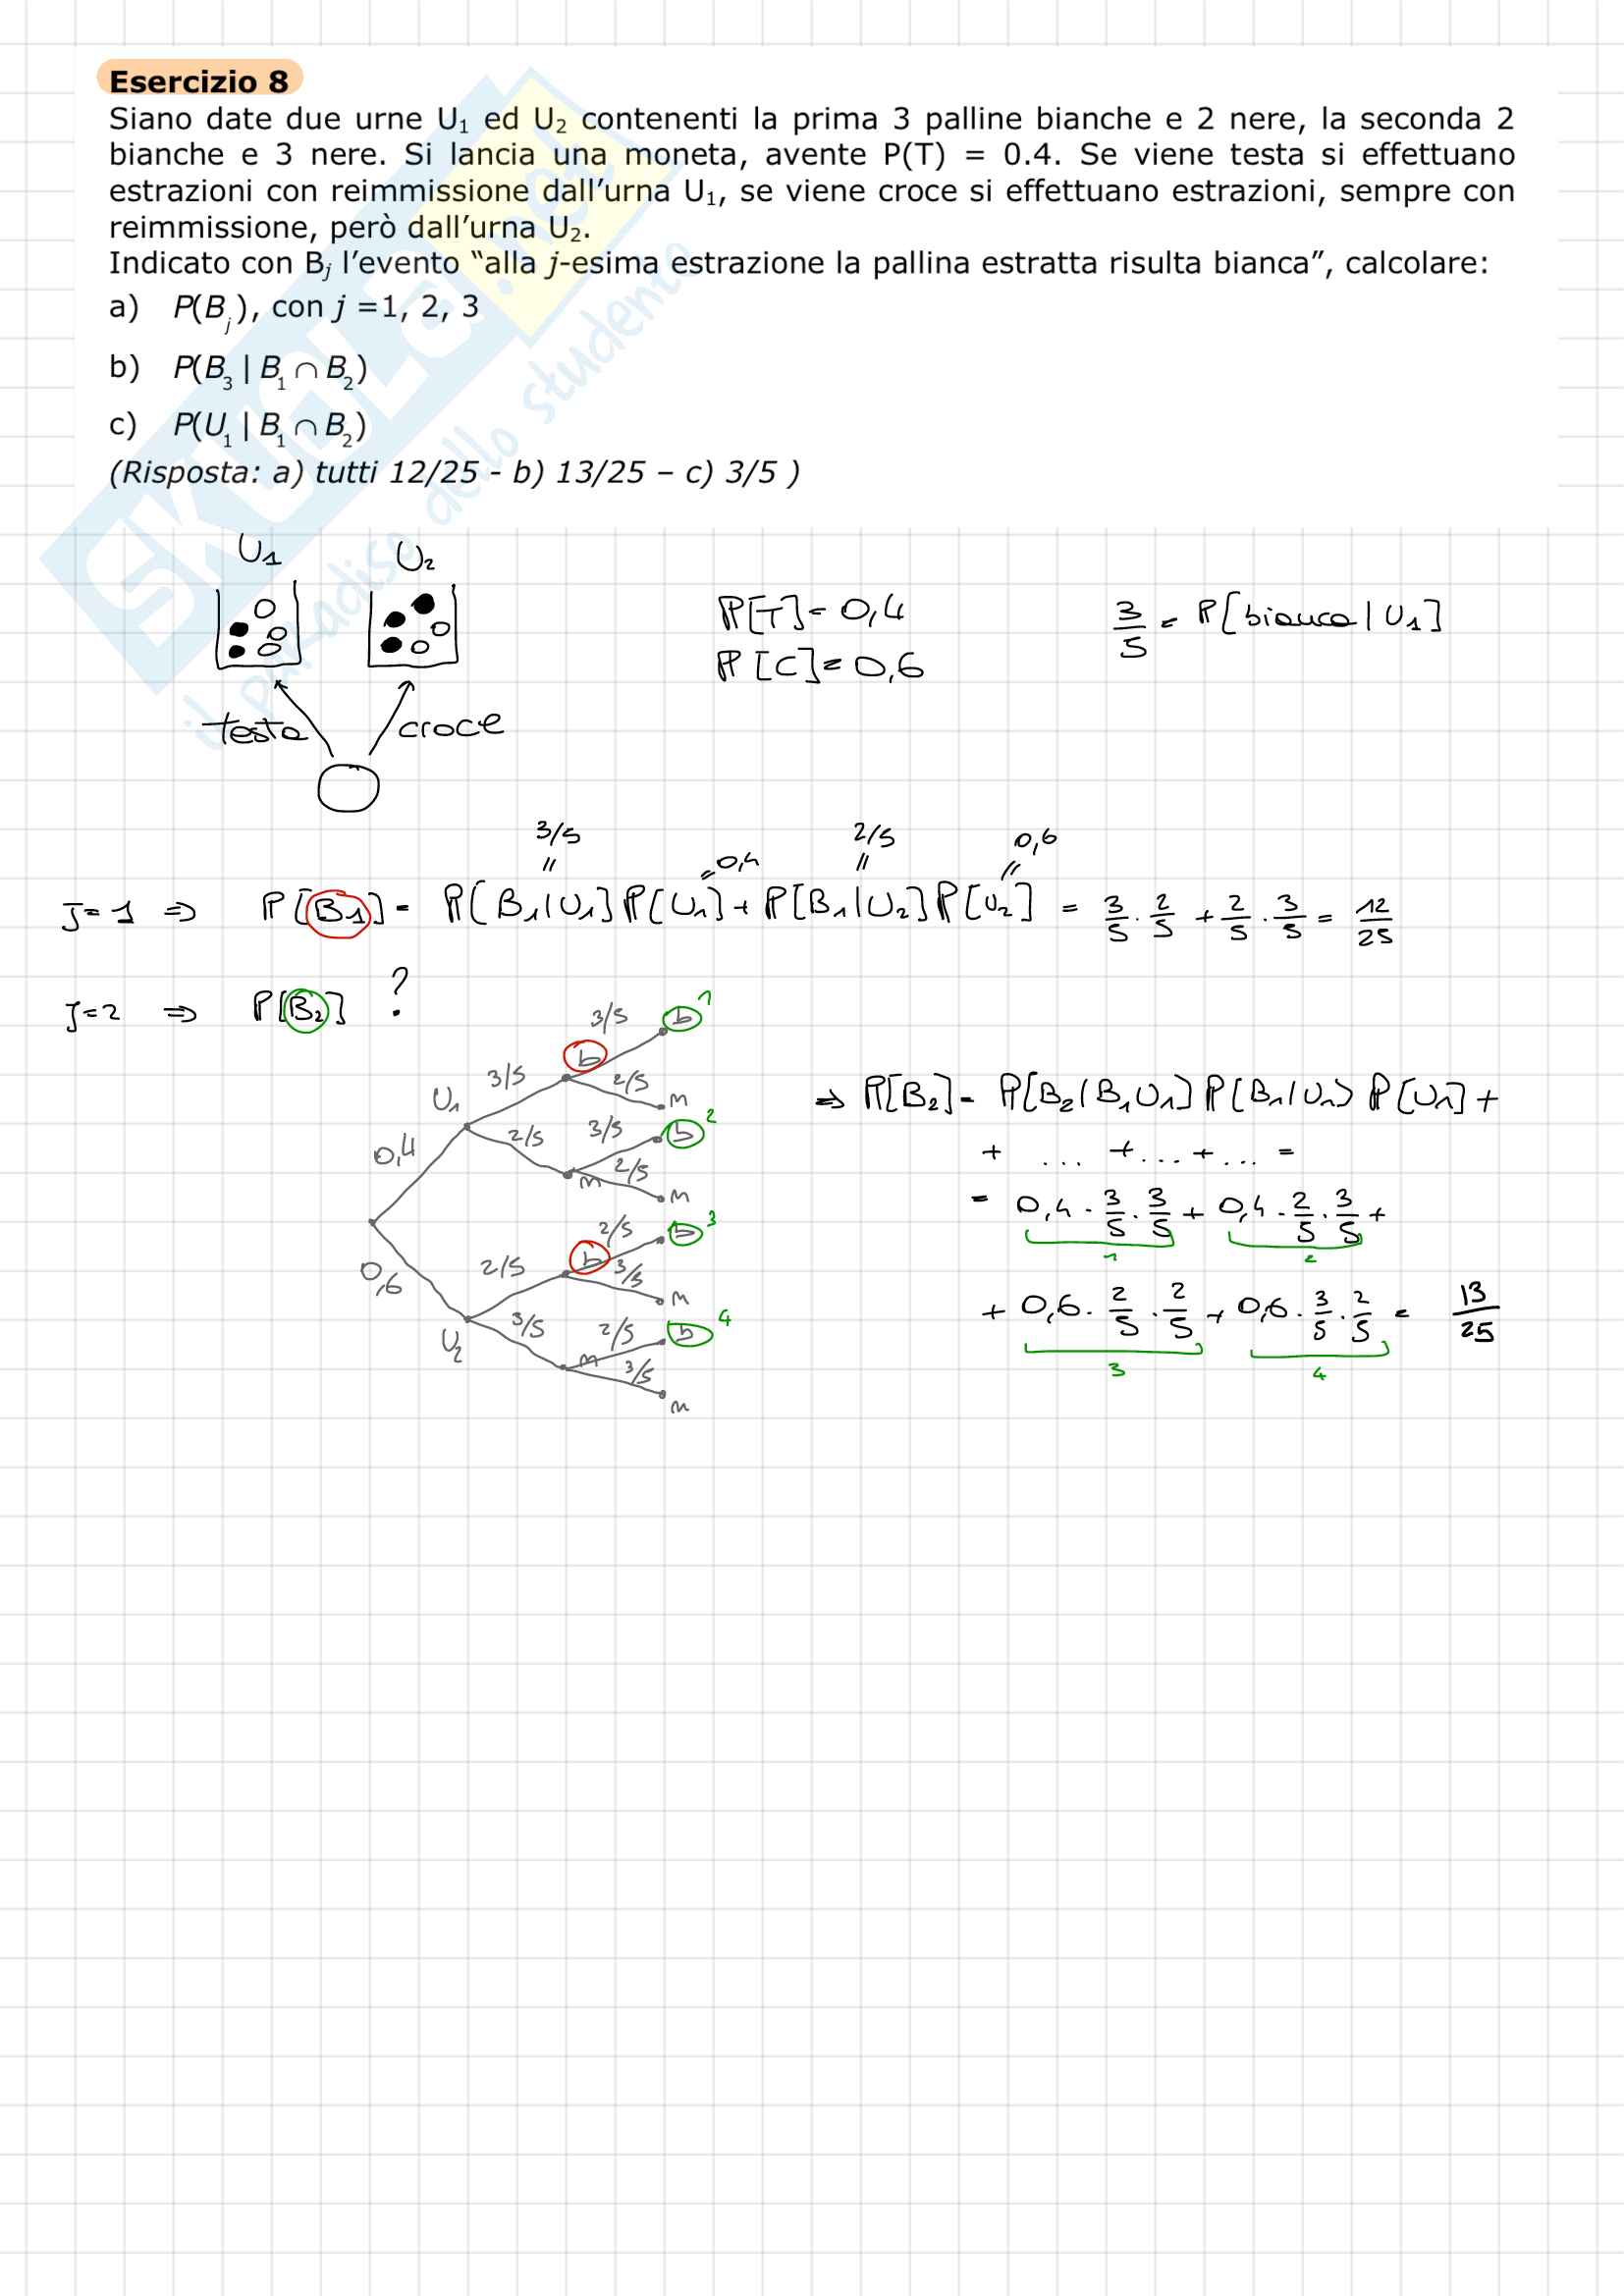 Esercizio 8
Siano date due urne U₁ ed U₂ contenenti la prima 3 palline bianche e 2 nere, la seconda 2
bianche e 3 nere. Si lancia una moneta, avente P(T) = 0.4. Se viene testa si effettuano
estrazioni con reimmissione dall’urna U₁, se viene croce si effettuano estrazioni, sempre con
reimmissione, però dall’urna U₂.
Indicato con Bⱼ l’evento “alla j-esima estrazione la pallina estratta risulta bianca”, calcolare:
a) P(Bⱼ), con j =1, 2, 3
b) P(B₃ | B₁ ∩ B₂)
c) P(U₁ | B₁ ∩ B₂)
(Risposta: a) tutti 12/25 - b) 13/25 – c) 3/5 )
SKUOLA.net
il paradiso dello studente
U₁ U₂
ℙ[T]=0,4 3/5 = ℙ[bianca | U₁]
ℙ[C]=0,6
testa croce
3/5 2/5 0,6
" =0,4 " "
J=1 ⇒ ℙ[B₁]= ℙ[B₁|U₁]ℙ[U₁]+ℙ[B₁|U₂]ℙ[U₂] = 3/5 · 2/5 + 2/5 · 3/5 = 12/25
J=2 ⇒ ℙ[B₂] ?
3/5 b 1
b
3/5 2/5 m
U₁
2/5 3/5 b 2
0,4
m 2/5 m
2/5 b 3
b
0,6 2/5 3/5 m
U₂
3/5 2/5 b 4
m 3/5
m
⇒ ℙ[B₂]= ℙ[B₂|B₁U₁]ℙ[B₁|U₁]ℙ[U₁]+
+ ... +...+... =
= 0,4 · 3/5 · 3/5 + 0,4 · 2/5 · 3/5 +
1 2
+ 0,6 · 2/5 · 2/5 + 0,6 · 3/5 · 2/5 = 13/25
3 4